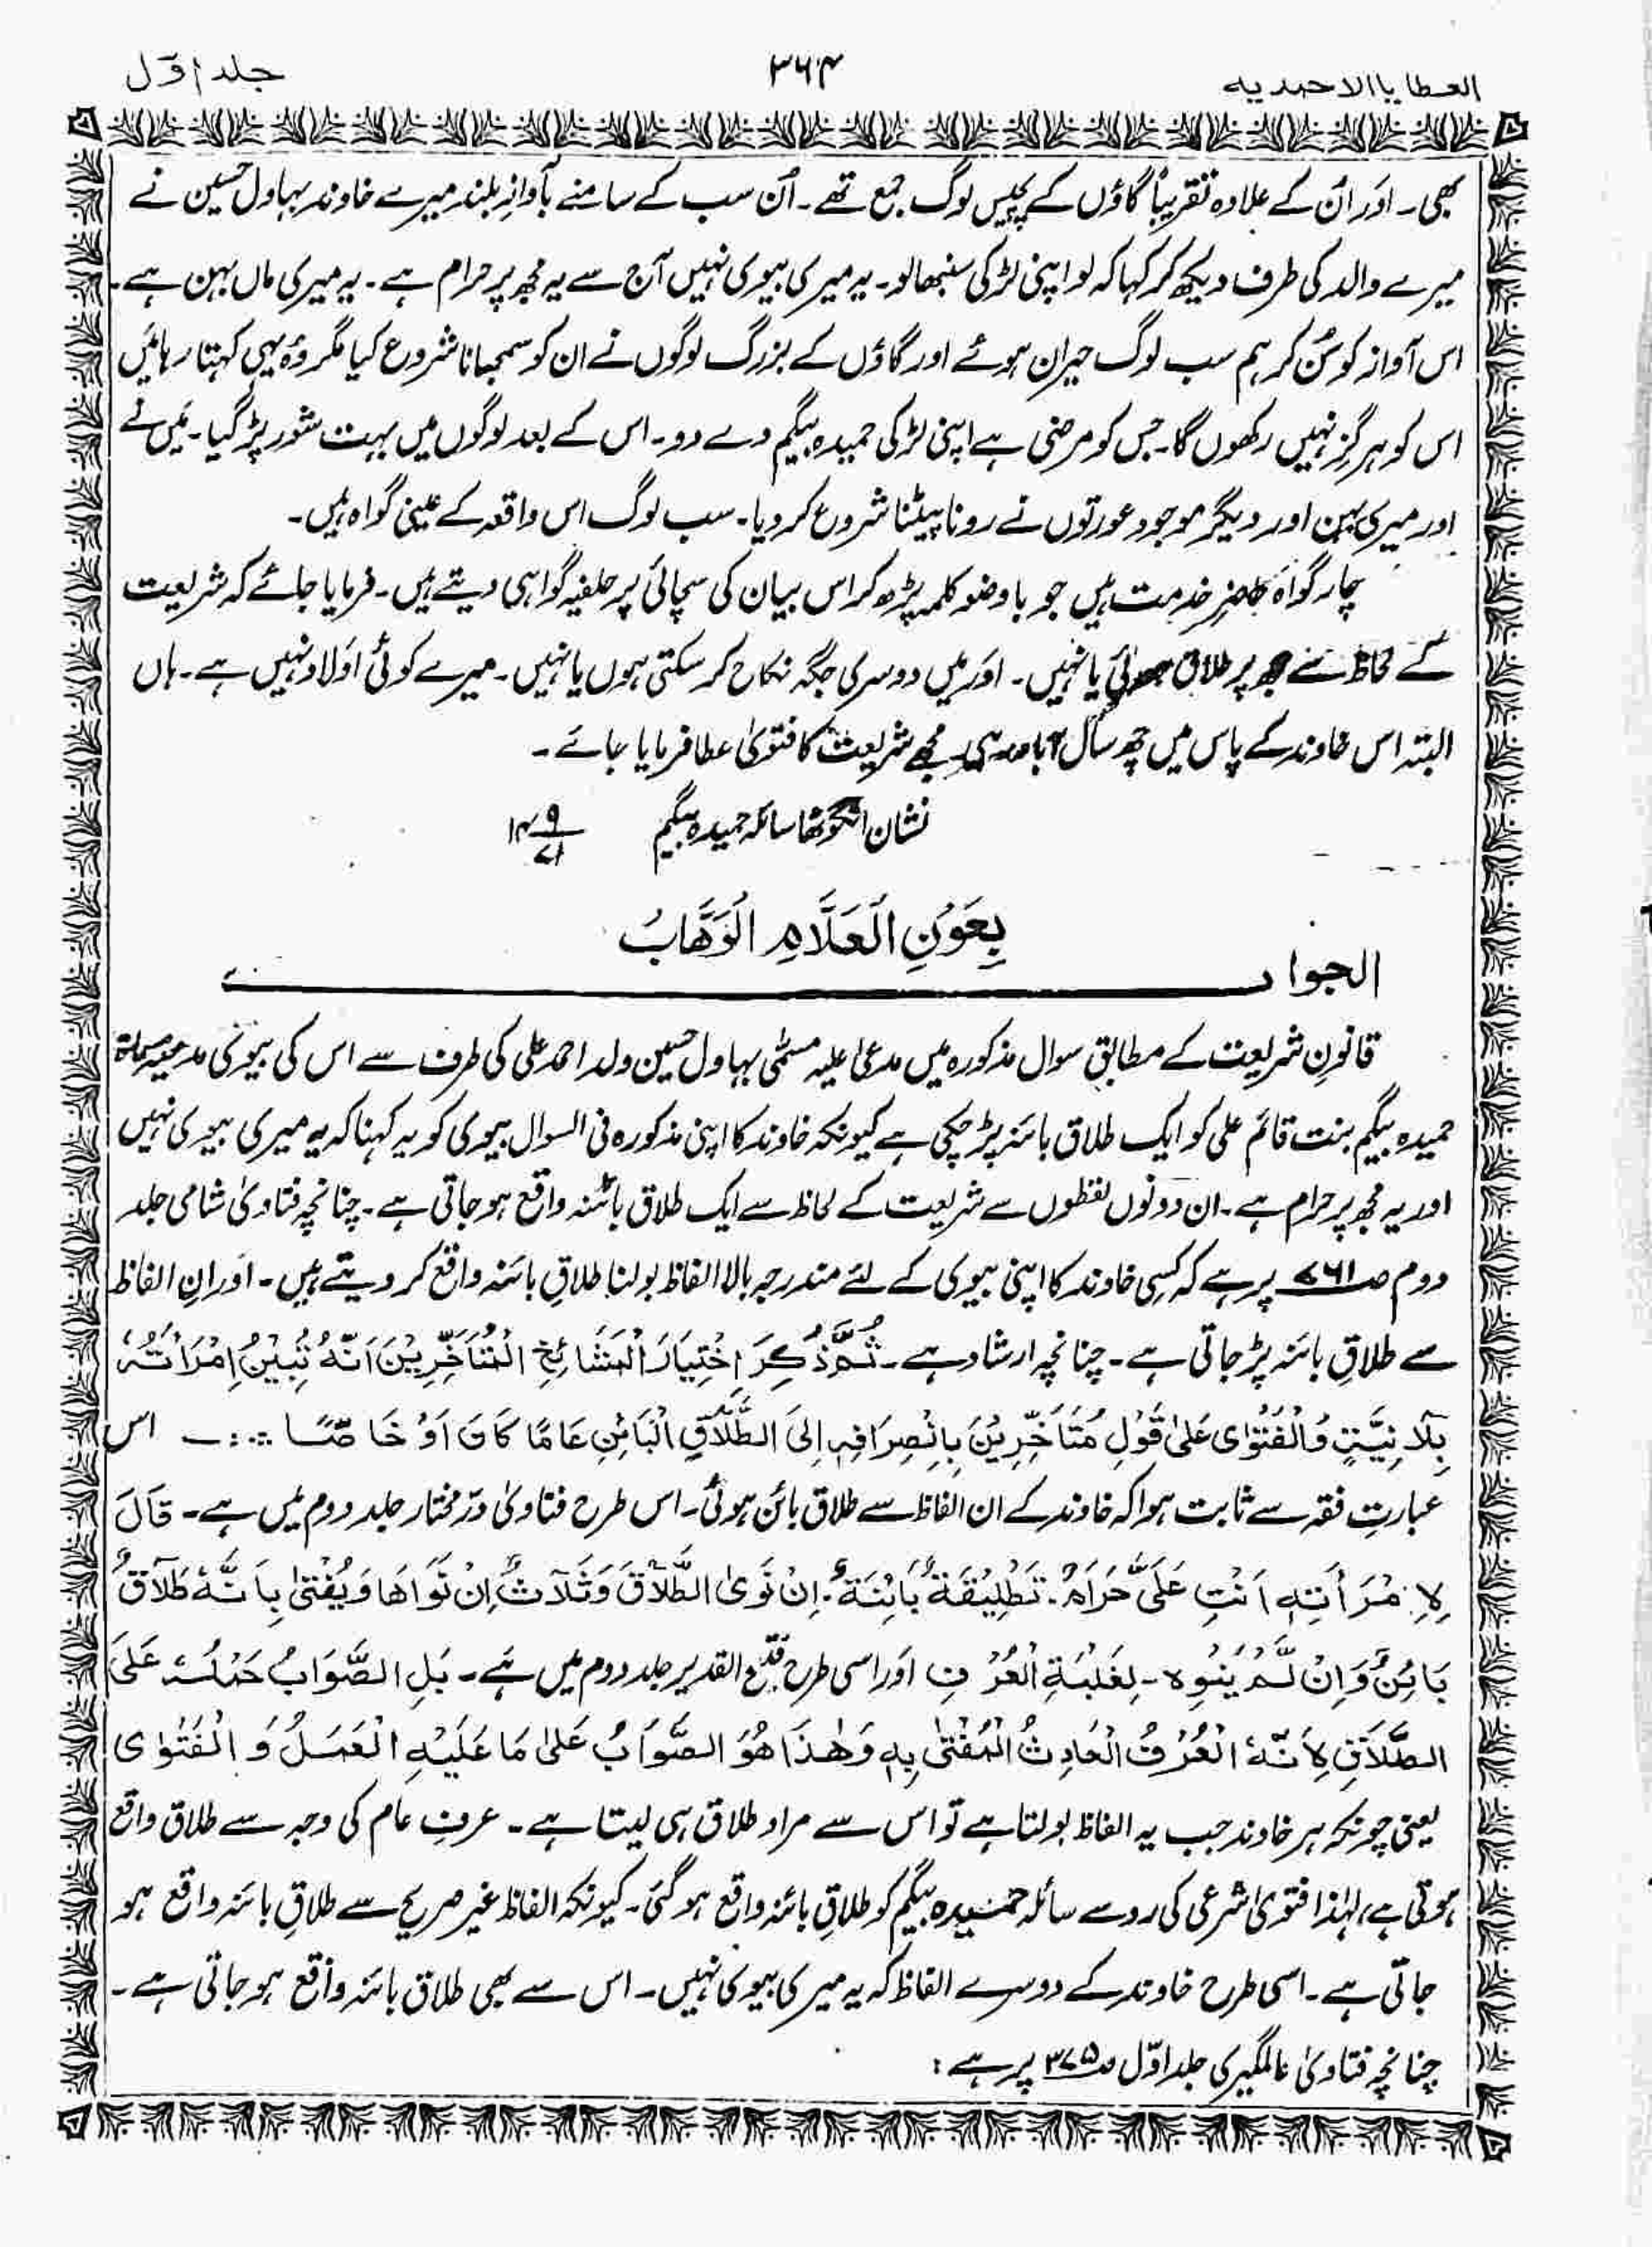 العطایا الاحمدیہ
۳۶۴
جلد اوّل
بھی۔ اور اُن کے علاوہ تقریباً گاؤں کے پچیس لوگ جمع تھے۔ اُن سب کے سامنے بآوازِ بلند میرے خاوند بہاول حسین نے
میرے والد کی طرف دیکھ کر کہا کہ لو اپنی لڑکی سنبھالو۔ یہ میری بیوی نہیں آج سے یہ مجھ پر حرام ہے۔ یہ میری ماں بہن ہے۔
اس آواز کو سُن کر ہم سب لوگ حیران ہوئے اور گاؤں کے بزرگ لوگوں نے ان کو سمجھانا شروع کیا مگر وُہ یہی کہتا رہا مَیں
اس کو ہرگز نہیں رکھوں گا۔ جس کو مرضی ہے اپنی لڑکی حمیدہ بیگم دے دو۔ اس کے بعد لوگوں میں بہت شور پڑ گیا۔ مَیں نے
اور میری بہن اور دیگر موجود عورتوں نے رونا پیٹنا شروع کر دیا۔ سب لوگ اس واقعہ کے عینی گواہ ہیں۔
چار گواہ حاضرِ خدمت ہیں جو با وضو کلمہ پڑھ کر اس بیان کی سچائی پر حلفیہ گواہی دیتے ہیں۔ فرمایا جائے کہ شریعت
کے لحاظ سے مجھ پر طلاق ہوئی یا نہیں۔ اور میں دوسری جگہ نکاح کر سکتی ہوں یا نہیں۔ میرے کوئی اولاد نہیں ہے۔ ہاں
البتہ اس خاوند کے پاس میں چھ سال آباد رہی۔ مجھے شریعت کا فتویٰ عطا فرمایا جائے۔
نشان انگوٹھا سائلہ حمیدہ بیگم ۱۴/۹/۷۱
بِعَوْنِ الْعَلَّامِ الْوَهَّابُ
الجواب
قانونِ شریعت کے مطابق سوال مذکورہ میں مدعیٰ علیہ مسمّٰی بہاول حسین ولد احمد علی کی طرف سے اس کی بیوی مدعیہ مسماۃ
حمیدہ بیگم بنت قائم علی کو ایک طلاق بائنہ پڑ چکی ہے کیونکہ خاوند کا اپنی مذکورہ فی السوال بیوی کو یہ کہنا کہ یہ میری بیوی نہیں
اور یہ مجھ پر حرام ہے۔ ان دونوں لفظوں سے شریعت کے لحاظ سے ایک طلاق بائنہ واقع ہو جاتی ہے۔ چنانچہ فتاویٰ شامی جلد
دوم صـ۷۶۱ پر ہے کہ کسی خاوند کا اپنی بیوی کے لئے مندرجہ بالا الفاظ بولنا طلاقِ بائنہ واقع کر دیتے ہیں۔ اور اِن الفاظ
سے طلاقِ بائنہ پڑ جاتی ہے۔ چنانچہ ارشاد ہے۔ ثُمَّ ذُكِرَ اِخْتِیَارَ الْمَشَائِخِ الْمُتَاَخِّرِیْنَ اَنَّهُ تُبِیْنُ اِمْرَاَتُهٗ
بِلَا نِیَّتٍ وَالْفَتْوٰی عَلیٰ قَوْلِ مُتَاَخِّرِیْنَ بِانْصِرَافِهٖ اِلَی الطَّلَاقِ الْبَائِنِ عَامًّا كَانَ اَوْ خَاصًّا ۔۔ اس
عبارتِ فقہ سے ثابت ہوا کہ خاوند کے ان الفاظ سے طلاق بائن ہوئی۔ اس طرح فتاویٰ درّ مختار جلد دوم مَیں ہے۔ قَالَ
لِاِمْرَأَتِهٖ اَنْتِ عَلَیَّ حَرَامٌ۔ تَطْلِیْقَةٌ بَائِنَةٌ۔ اِنْ نَوَی الطَّلَاقَ وَثَلَاثٌ اِنْ نَوَاهَا وَ یُفْتٰی بِاَنَّهٗ طَلَاقٌ
بَائِنٌ وَاِنْ لَّمْ یَنْوِہ۔ لِغَلَبَةِ الْعُرْفِ اور اسی طرح فتح القدیر جلد دوم میں ہے۔ بَلِ الصَّوَابُ حَمْلُهٗ عَلَی
الطَّلَاقِ لِاَنَّهٗ الْعُرْفُ الْحَادِثُ الْمُفْتٰی بِهٖ وَهٰذَا هُوَ الصَّوَابُ عَلیٰ مَا عَلَیْهِ الْعَمَلُ وَ الْفَتْوٰی
یعنی چونکہ ہر خاوند جب یہ الفاظ بولتا ہے تو اس سے مراد طلاق ہی لیتا ہے۔ عرفِ عام کی وجہ سے طلاق واقع
ہوتی ہے، لہٰذا فتویٰ شرعی کی رو سے سائلہ حمیدہ بیگم کو طلاقِ بائنہ واقع ہو گئی۔ کیونکہ الفاظ غیر صریح سے طلاقِ بائنہ واقع ہو
جاتی ہے۔ اسی طرح خاوند کے دوسرے الفاظ کہ یہ میری بیوی نہیں۔ اس سے بھی طلاق بائنہ واقع ہو جاتی ہے۔
چنانچہ فتاویٰ عالمگیری جلد اوّل صـ۳۷۵ پر ہے: